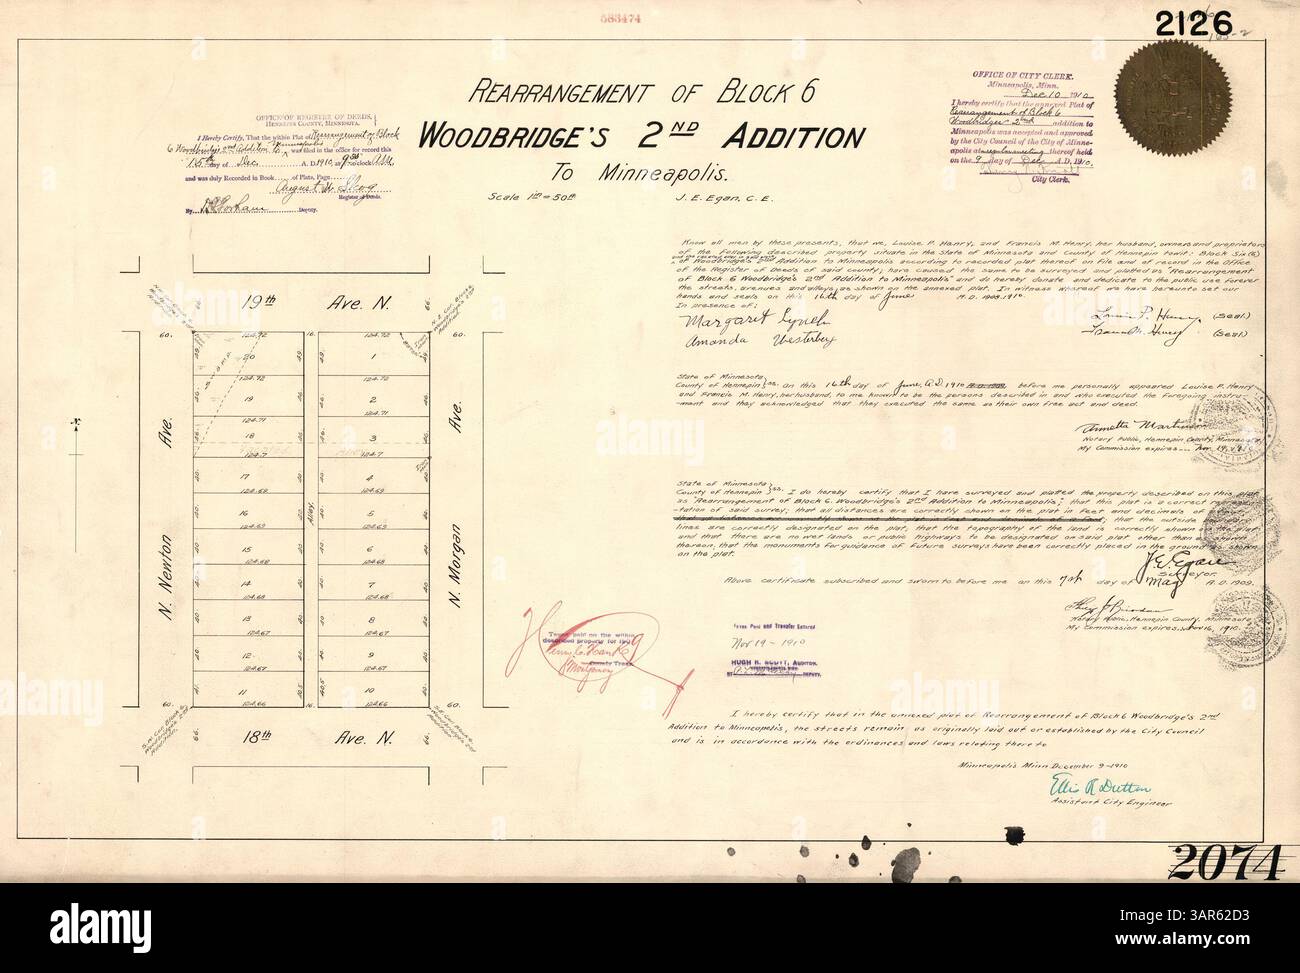 583474
2126
REARRANGEMENT OF BLOCK 6
WOODBRIDGE'S 2ND ADDITION
TO MINNEAPOLIS.
Scale 1in = 50ft
J. E. Egan, C. E.
OFFICE OF REGISTER OF DEEDS,
HENNEPIN COUNTY, MINNESOTA.
I Hereby Certify, That the within Plat of Rearrangement of Block
6 Woodbridge's 2nd Addition to Minneapolis was filed in the office for record this
15th day of Dec A. D. 1910, at 9 30 o'clock A. M.
and was duly Recorded in Book of Plats, Page
August W. Skog
Register of Deeds.
By Deputy.
OFFICE OF CITY CLERK.
Minneapolis, Minn.
Dec 10 1910
I hereby certify that the annexed Plat of
Rearrangement of Block 6
Woodbridges 2nd addition to
Minneapolis was accepted and approved
by the City Council of the City of Minne-
apolis at regular meeting thereof held
on the 9 day of Dec A. D. 1910.
City Clerk.
Know all men by these presents, that we, Louise P. Henry, and Francis M. Henry, her husband, owners and proprietors
of the following described property situate in the State of Minnesota and County of Hennepin towit: Block Six (6)
of Woodbridge's 2nd Addition to Minneapolis according to recorded plat thereof on file and of record in the Office
of the Register of Deeds of said county; have caused the same to be surveyed and platted as "Rearrangement
of Block 6 Woodbridge's 2nd Addition to Minneapolis" and do hereby donate and dedicate to the public use forever
the streets, avenues and alleys, as shown on the annexed plat. In witness whereof we have hereunto set our
hands and seals on this 16th day of June A. D. 1909. 1910.
In presence of:
Margaret Lynch
Amanda Westerberg
Louise P. Henry (Seal.)
Francis M. Henry (Seal.)
State of Minnesota
County of Hennepin } ss. On this 16th day of June, A.D. 1910 A. D. 1909 before me personally appeared Louise P. Henry
and Francis M. Henry, her husband, to me known to be the persons described in and who executed the foregoing instru-
ment and they acknowledged that they executed the same as their own free act and deed.
Annetta Martinson
Notary Public, Hennepin County, Minnesota,
My Commission expires
State of Minnesota
County of Hennepin } ss. I do hereby certify that I have surveyed and platted the property described on this plat
as "Rearrangement of Block 6, Woodbridge's 2nd Addition to Minneapolis"; that this plat is a correct represen-
tation of said survey; that all distances are correctly shown on the plat in feet and decimals of a foot;
that the outside
lines are correctly designated on the plat, that the topography of the land is correctly shown on the plat
and that there are no wet lands or public highways to be designated on said plat other than as shown
thereon; that the monuments for guidance of future surveys have been correctly placed in the ground as shown
on the plat.
J. E. Egan
Surveyor.
Above certificate subscribed and sworn to before me on this 7th day of May A. D. 1909.
Notary Public, Hennepin County, Minnesota
My Commission expires Nov 16, 1910.
Taxes paid on the within
described property for 1909
County Treas.
Taxes Paid and Transfer Entered
Nov 19 - 1910
HUGH R. SCOTT, AUDITOR.
BY DEPUTY.
I hereby certify that in the annexed plat of Rearrangement of Block 6 Woodbridge's 2nd
Addition to Minneapolis, the streets remain as originally laid out or established by the City Council
and is in accordance with the ordinances and laws relating thereto
Minneapolis Minn December 9 - 1910
Ellis R Dutton
Assistant City Engineer
2074
19th Ave. N.
N. Newton Ave.
N. Morgan Ave.
Alley.
18th Ave. N.
60. 124.72 16. 124.72 60.
20 1
124.72 124.72
19 2
124.71 124.71
18 3
124.7 124.7
17 4
124.69 124.69
16 5
124.69 124.69
15 6
124.68 124.68
14 7
124.68 124.68
13 8
124.67 124.67
12 9
124.67 124.67
11 10
60. 124.66 16. 124.66 60.
alamy
Image ID: 3AR62D3
www.alamy.com